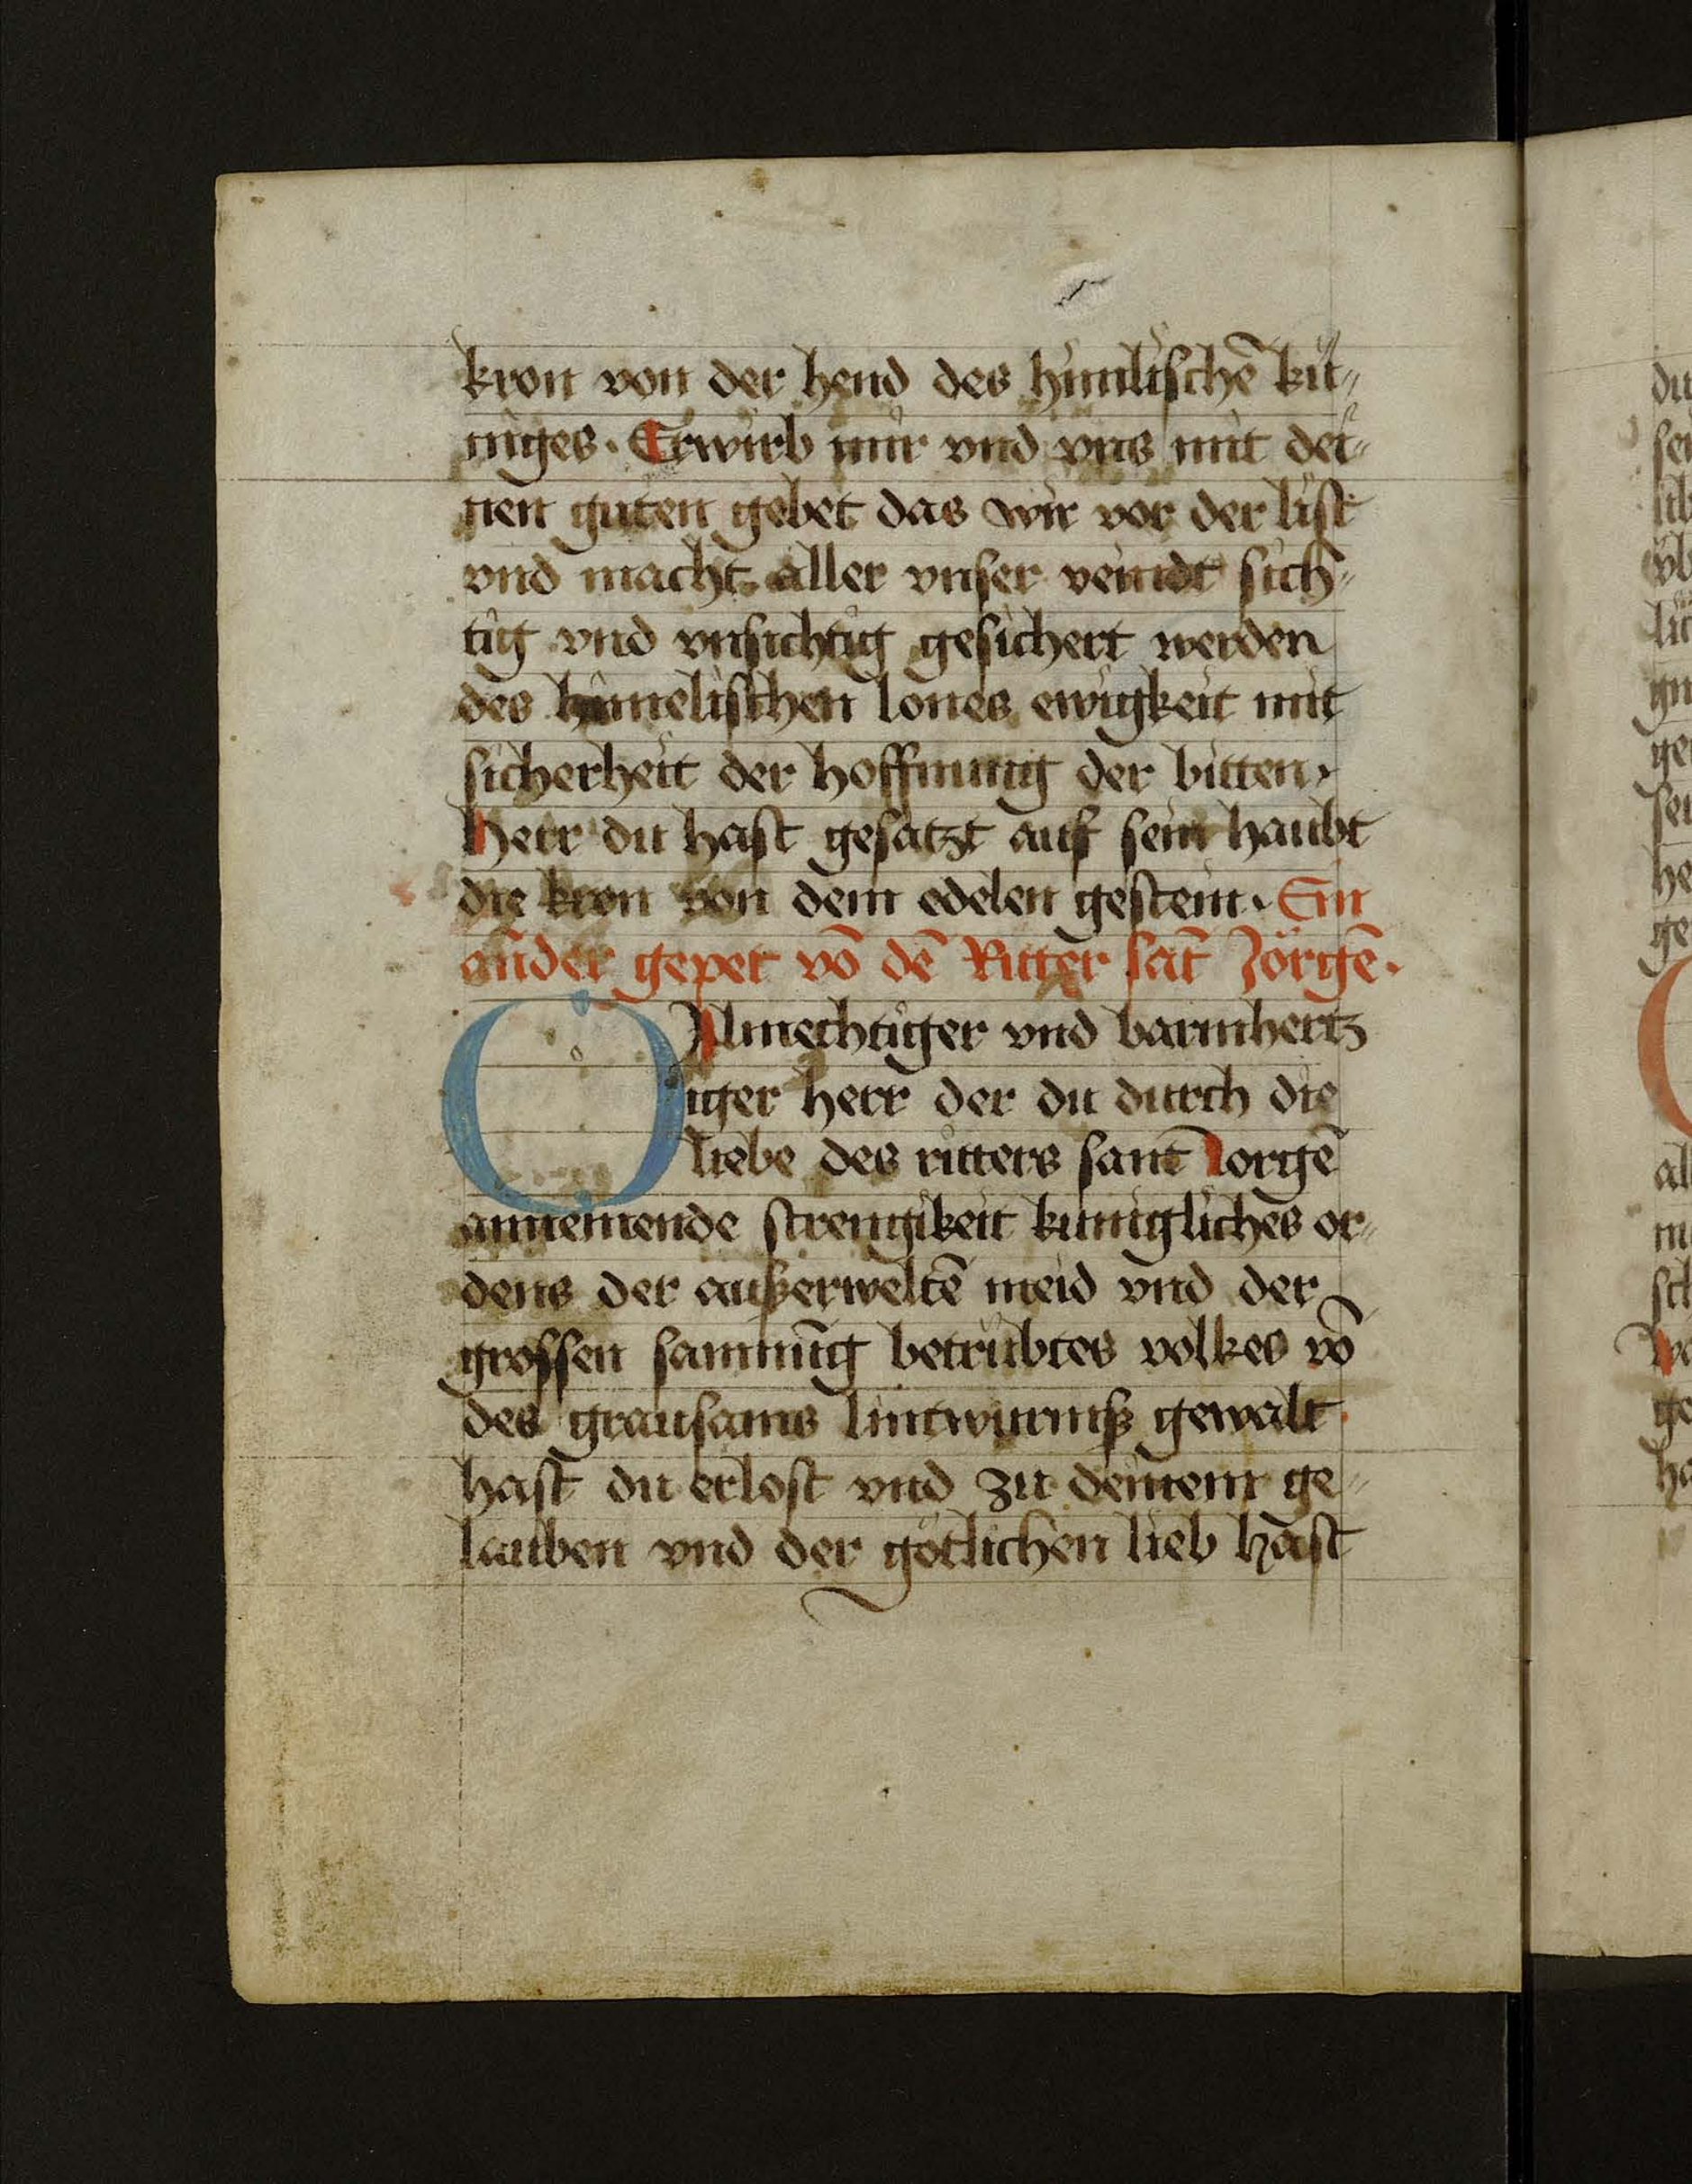 kron von der hend des himlischē kü⸗
niges. Erwirb mir vnd vns mit dei⸗
nen guten gebet das wir vor der list
vnd macht aller vnser veindt sich⸗
tig vnd vnsichtig gesichert werden
des himelischen lones ewigkeit mit
sicherheit der hoffnung der bitten.
Herr du hast gesatzt auf sein haubt
die kron von dem edelen gestein. Ein
ander gepet vō dē Ritter sāt Jörgē.
O Almechtiger vnd barmhertz
iger herr der du durch die
liebe des ritters sant Jorgē
annemende strengikeit kunigliches or⸗
dens der außerweltē meid vnd der
grossen sammūg betrübtes volkes vō
des grausams lintwurmß gewalt
hast du erlost vnd zu deinem ge⸗
lauben vnd der götlichen lieb hast